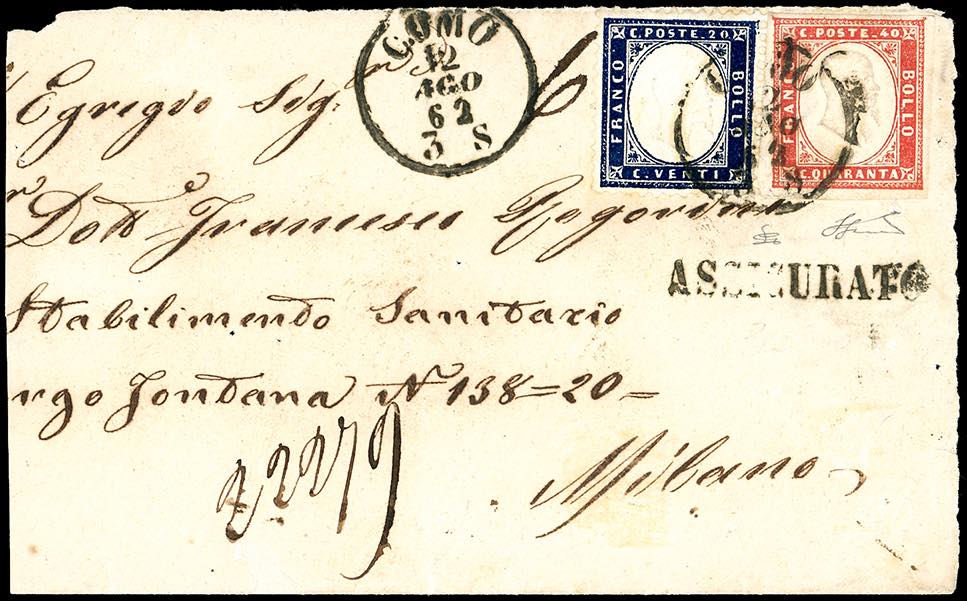 COMO
12
AGO
62
3 S
C. POSTE. 20.
FRANCO
BOLLO
C. VENTI
C. POSTE. 40
FRANCO
BOLLO
C. QUARANTA
Egregio Sigr
6
Dott Francesco
ASSICURATO
Stabilimendo Sanitario
rgo Fontana N 138=20=
Milano